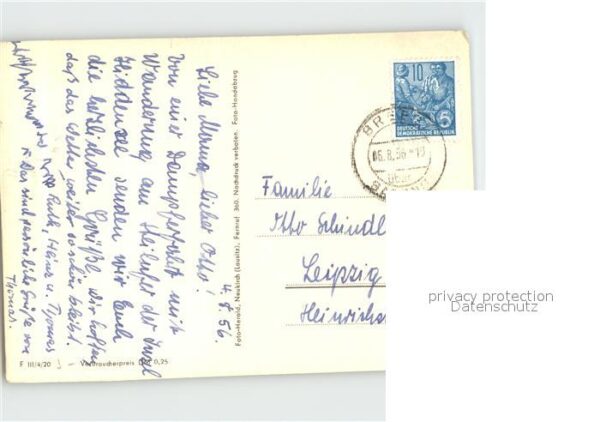 4.8.56.
Liebe Mama, lieber Otto!
Von einer Dampferfahrt mit
Wanderung am Steilufer der Insel
Hiddensee senden wir Euch
die herzlichsten Grüße. Wir hoffen
daß das Wetter weiter so schön bleibt.
Ruth, Heinz u. Thomas
x Das sind persönliche Grüße von
Thomas.
F III/4/20 Verbraucherpreis DM 0,25
Foto-Herold, Neukirch (Lausitz), Fernruf 360. Nachdruck verboten. Foto-Handabzug
10
5
DEUTSCHE
DEMOKRATISCHE REPUBLIK
06.8.56
Familie
Otto Schindl
Leipzig
Heinrich
privacy protection
Datenschutz